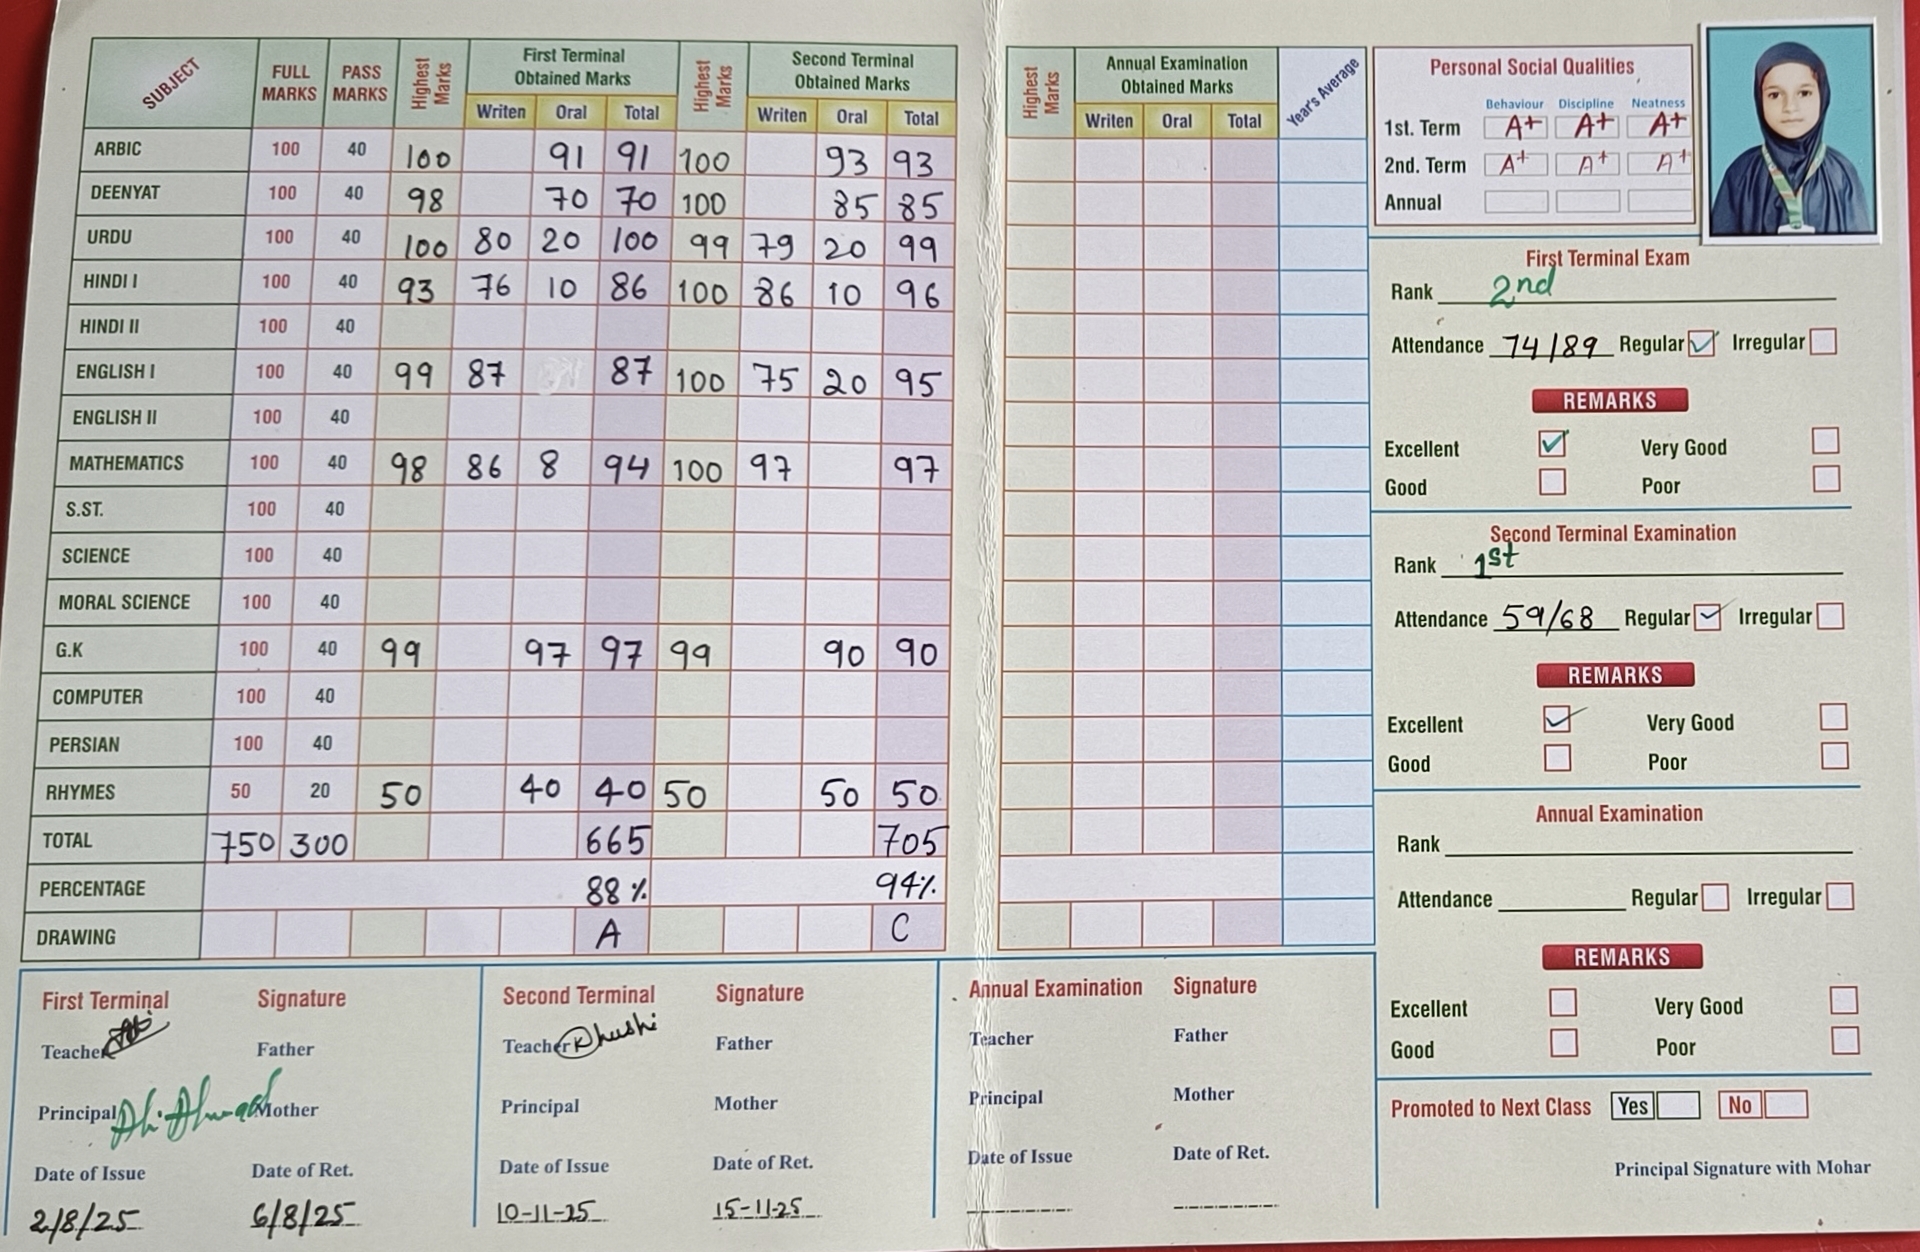 SUBJECT FULL MARKS PASS MARKS Highest Marks First Terminal Obtained Marks Highest Marks Second Terminal Obtained Marks
Writen Oral Total Writen Oral Total
ARBIC 100 40 100 91 91 100 93 93
DEENYAT 100 40 98 70 70 100 85 85
URDU 100 40 100 80 20 100 99 79 20 99
HINDI I 100 40 93 76 10 86 100 86 10 96
HINDI II 100 40
ENGLISH I 100 40 99 87 87 100 75 20 95
ENGLISH II 100 40
MATHEMATICS 100 40 98 86 8 94 100 97 97
S.ST. 100 40
SCIENCE 100 40
MORAL SCIENCE 100 40
G.K 100 40 99 97 97 99 90 90
COMPUTER 100 40
PERSIAN 100 40
RHYMES 50 20 50 40 40 50 50 50
TOTAL 750 300 665 705
PERCENTAGE 88% 94%
DRAWING A C
First Terminal Signature
Teacher Father
Principal Mother
Date of Issue Date of Ret.
2/8/25 6/8/25
Second Terminal Signature
Teacher Khushi Father
Principal Mother
Date of Issue Date of Ret.
10-11-25 15-11-25
Highest Marks Annual Examination Obtained Marks Year's Average
Writen Oral Total
Annual Examination Signature
Teacher Father
Principal Mother
Date of Issue Date of Ret.
Personal Social Qualities
Behaviour Discipline Neatness
1st. Term A+ A+ A+
2nd. Term A+ A+ A+
Annual
First Terminal Exam
Rank 2nd
Attendance 74/89 Regular Irregular
REMARKS
Excellent Very Good
Good Poor
Second Terminal Examination
Rank 1st
Attendance 59/68 Regular Irregular
REMARKS
Excellent Very Good
Good Poor
Annual Examination
Rank
Attendance Regular Irregular
REMARKS
Excellent Very Good
Good Poor
Promoted to Next Class Yes No
Principal Signature with Mohar